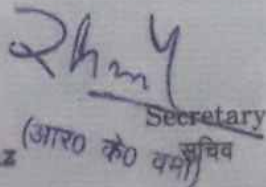 Secretary
(आर० के० वर्मा) सचिव